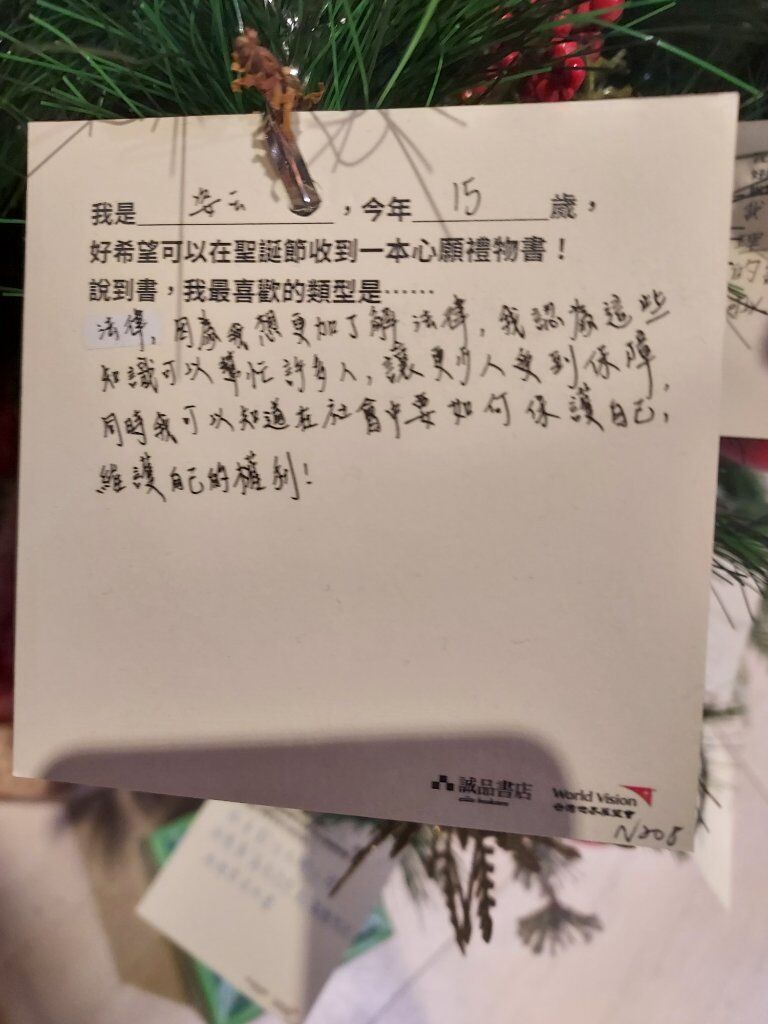 我是安云，今年15歲，
好希望可以在聖誕節收到一本心願禮物書！
說到書，我最喜歡的類型是……
法律，因為我想更加了解法律，我認為這些
知識可以幫忙許多人，讓更多人受到保障，
同時我可以知道在社會中要如何保護自己，
維護自己的權利！
誠品書店
eslite bookstore
World Vision
台灣世界展望會
N208